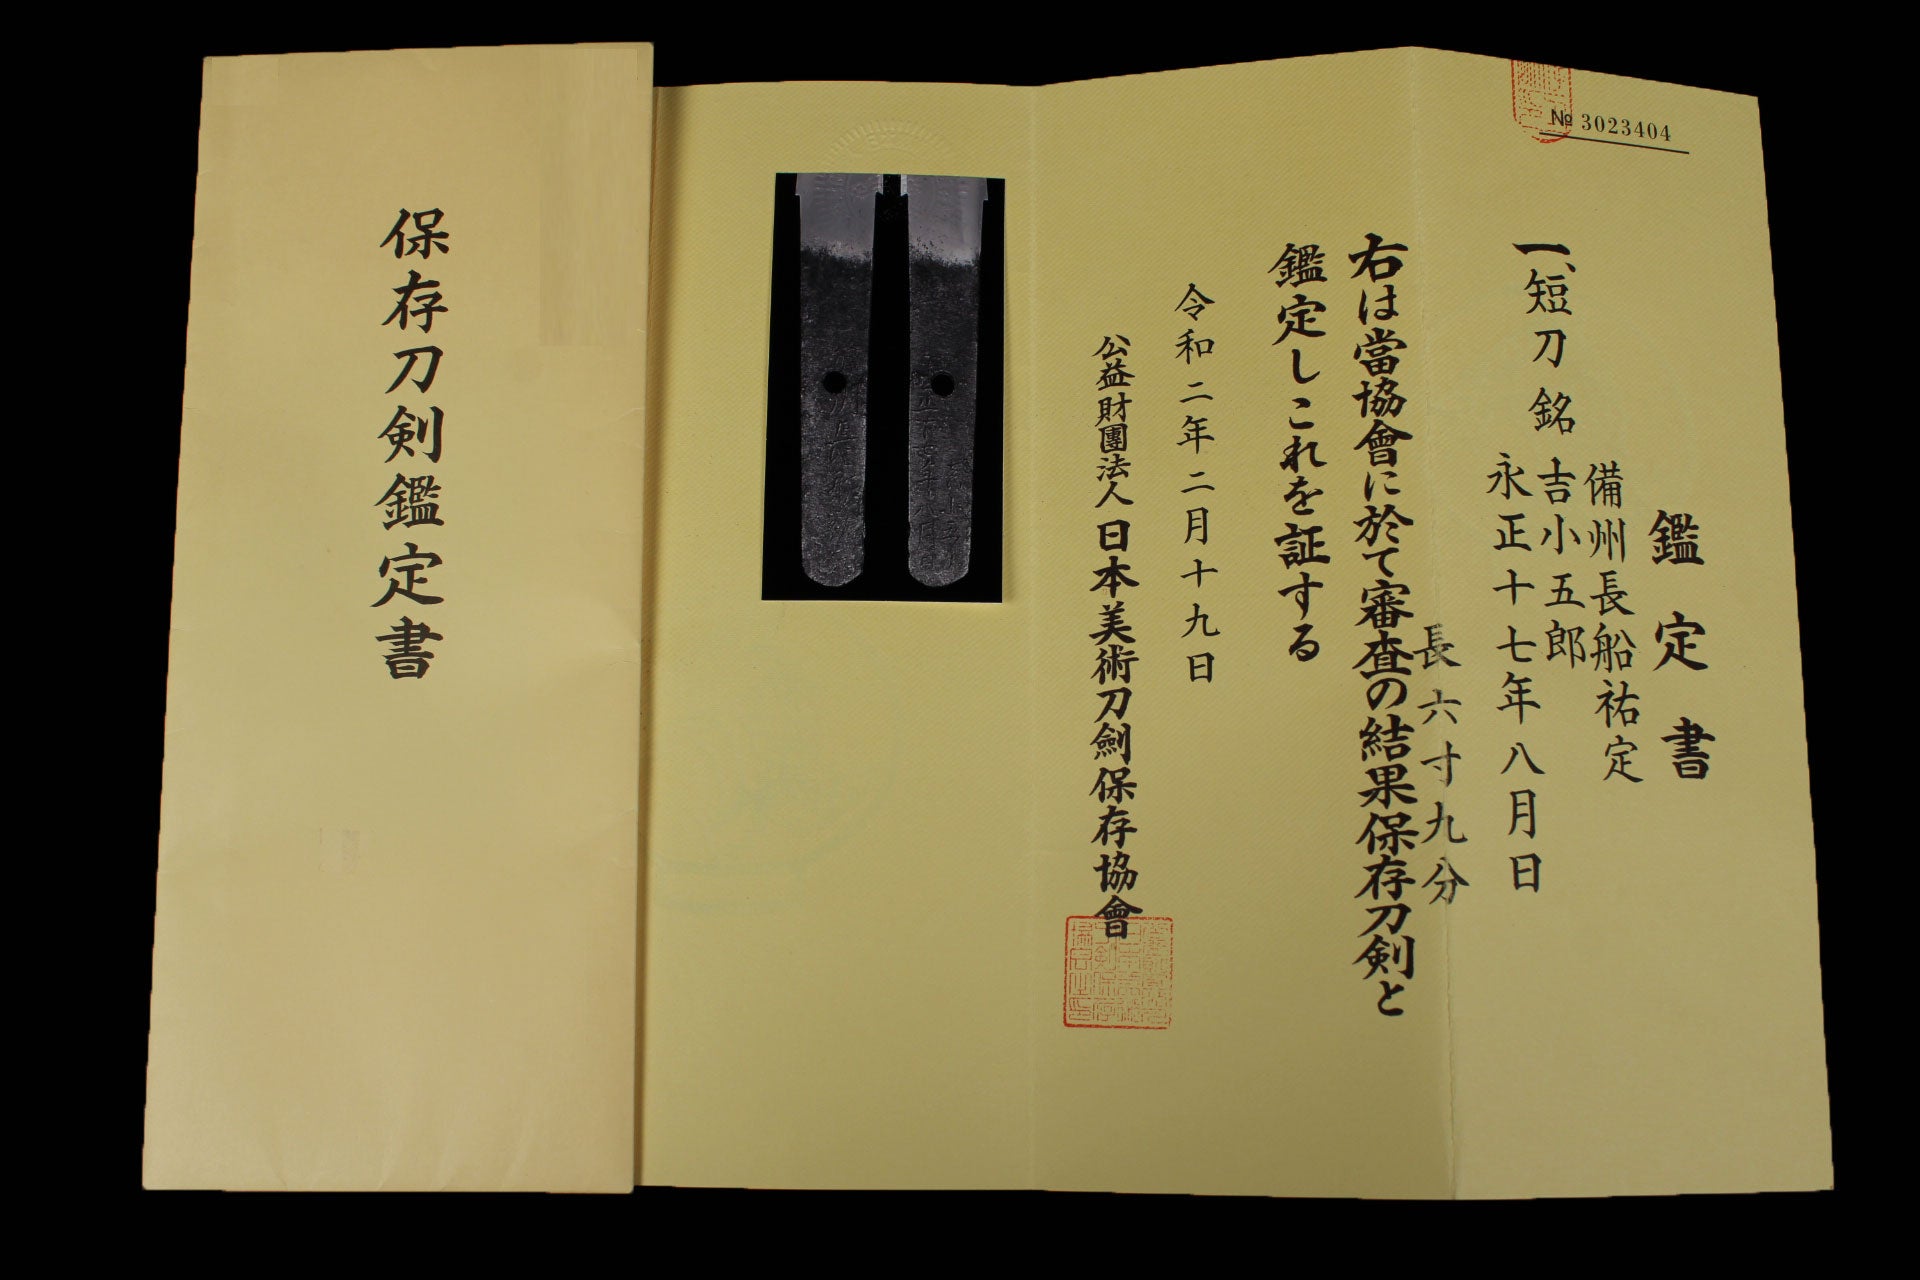 № 3023404
鑑定書
一、短刀 銘
備州長船祐定
吉小五郎
永正十七年八月日
長六寸九分
右は當協會に於て審査の結果保存刀剣と
鑑定しこれを証する
令和二年二月十九日
公益財團法人日本美術刀劍保存協會
保存刀剣鑑定書